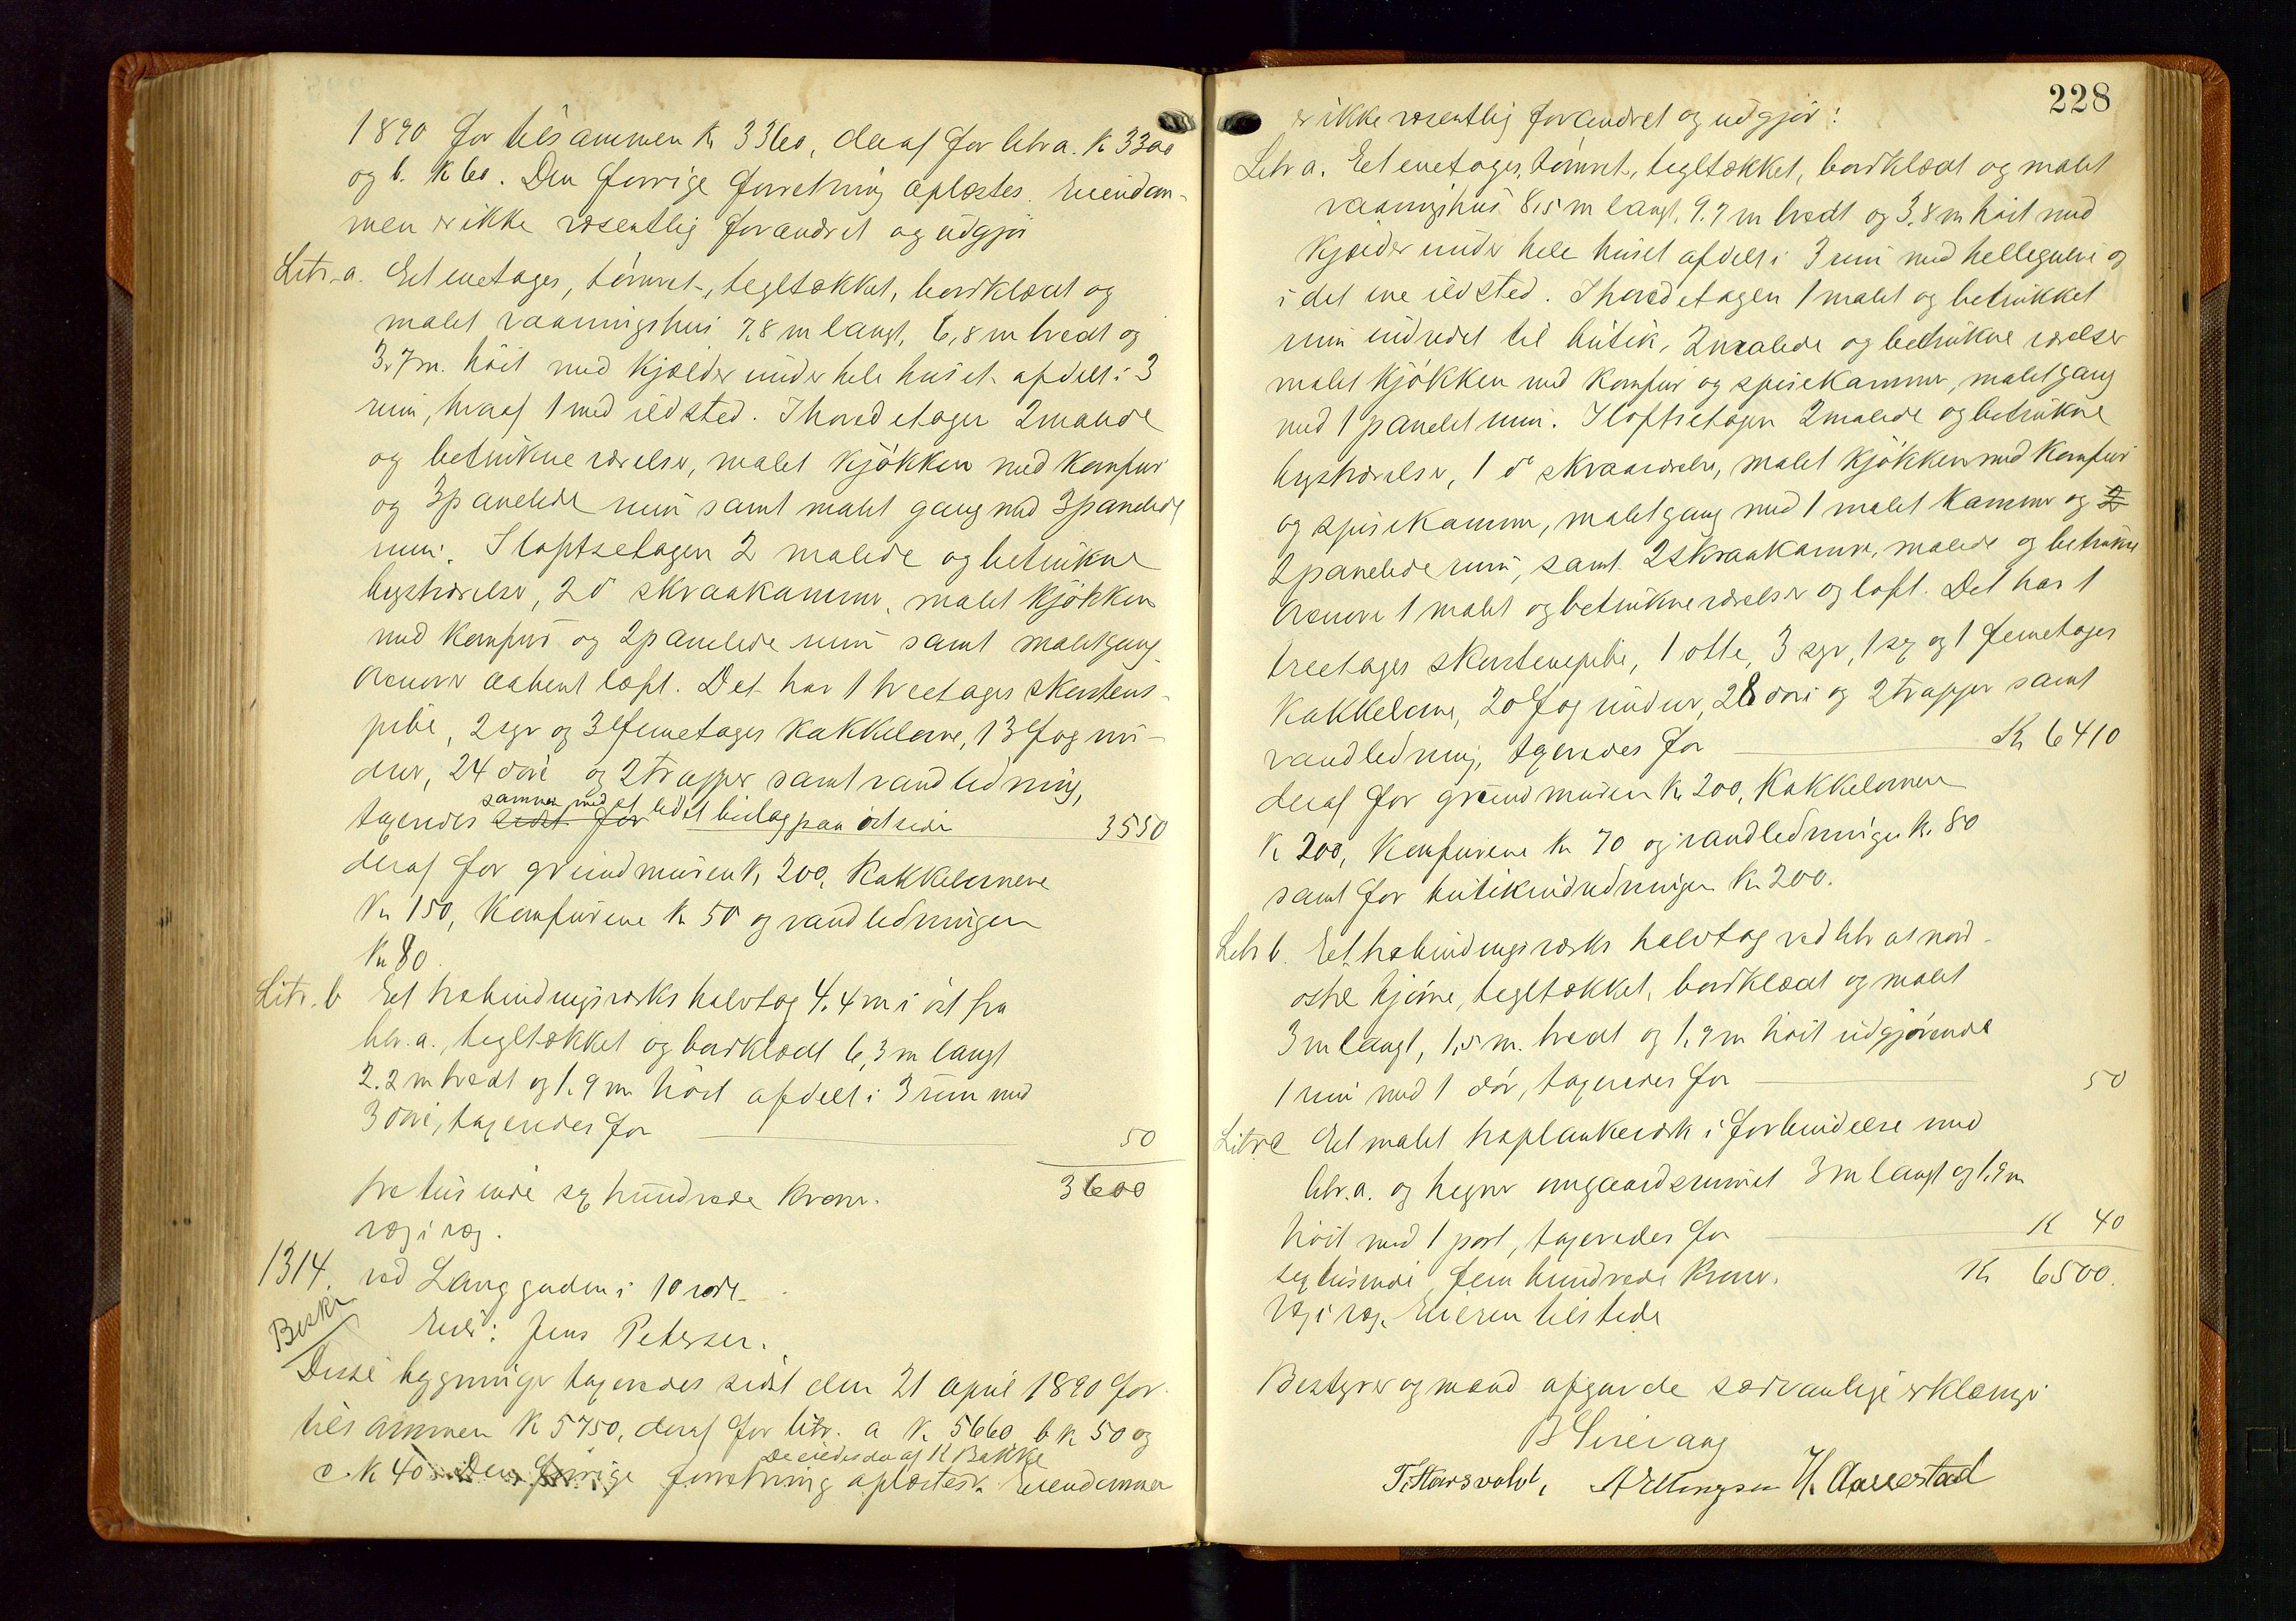 1890 for tilsammen K 3360, deraf for litr a. K 3300
og b. K 60. Den forrige forretning oplæstes. Eiendom-
men er ikke væsentlig forandret og udgjør
Litr. a. Et enetages, tømret, tegltækket, bordklædt og
malet vaaningshus 7,8 m langt, 6,8 m bredt og
3,7 m. høit med kjælder under hele huset afdelt i 3
rum, hvoraf 1 med ildsted. I hovedetagen 2 malede
og betrukne værelser, malet kjøkken med komfur
og 3 panelede rum samt malet gang med 3 panelede
rum. I loftsetagen 2 malede og betrukne
kvistværelser, 2 do skraakammer, malet kjøkken
med komfur og 2 panelede rum samt malet gang.
Ovenover aabent loft. Det har 1 treetages skorstens-
pibe, 2 syv og 3 femetages kakkelovne, 13 fag vin-
duer, 24 døre og 2 trapper samt vandledning,
taxeredes sidst for sammen med et lidet bislag paa østside 3550
deraf for grundmuren K. 200, kakkelovnene
Kr 150, komfurene Kr 50 og vandledningen
Kr 80.
Litr. b Et træbindingsværks halvtag 4.4 m i øst fra
litr. a., tegltækket og bordklædt 6,3 m langt
2.2 m bredt og 1.9 m høit afdelt i 3 rum med
3 døre, taxeredes for 50
tre tusinde sex hundrede kroner. 3600
væg i væg.
1314. ved Langgaden i 10 rode.
Beskr
Eier: Jens Petersen.
Disse bygninger taxeredes sidst den 21 april 1890 for
tilsammen K 5750, deraf for litr. a K. 5660, b K 50 og
De eiedes da af K Bakke
c. K 40. Den forrige forretning oplæstes. Eiendommen
228
er ikke væsentlig forandret og udgjør:
Litr a. Et enetages, tømret, tegltækket, bordklædt og malet
vaaningshus 8,5 m langt, 9.7 m bredt og 3,8 m høit med
kjælder under hele huset afdelt i 3 rum med hellegulv og
i det ene ildsted. I hovedetagen 1 malet og betrukket
rum indredet til butik, 2 malede og betrukne værelser
malet kjøkken med komfur og spisekammer, malet gang
med 1 panelet rum. I loftsetagen 2 malede og betrukne
kvistværelser, 1 do skraaværelse, malet kjøkken med komfur
og spisekammer, malet gang med 1 malet kammer og 2
2 panelede rum, samt 2 skraakamre, malede og betrukne
Ovenover 1 malet og betrukne værelser og loft. Det har 1
treetages skorstenspibe, 1 otte, 3 syv, 1 sex og 1 femetages
kakkelovne, 20 fag vinduer, 28 døre og 2 trapper samt
vandledning, taxeredes for Kr 6410
deraf for grundmuren K. 200, kakkelovnene
K 200, komfurene Kr 70 og vandledningen K. 80
samt for butikindredningen Kr. 200.
Litr b. Et træbindingsværks halvtag ved litr a's nord-
østre hjørne, tegltækket, bordklædt og malet
3 m langt, 1,5 m. bredt og 1,9 m høit udgjørende
1 rum med 1 dør, taxeredes for 50
Litr c Et malet træplankeværk i forbindelse med
litr. a. og hegner om gaardsrummet 3 m langt og 1.9 m
høit med 1 port, taxeredes for K 40
sextusinde fem hundrede kroner. Kr 6500.
væg i væg. Eieren tilstede
Bestyrer og mænd afgav de sædvanlige erklæringer
T. Haarsvold, A Ellingsen H. Aarrestad